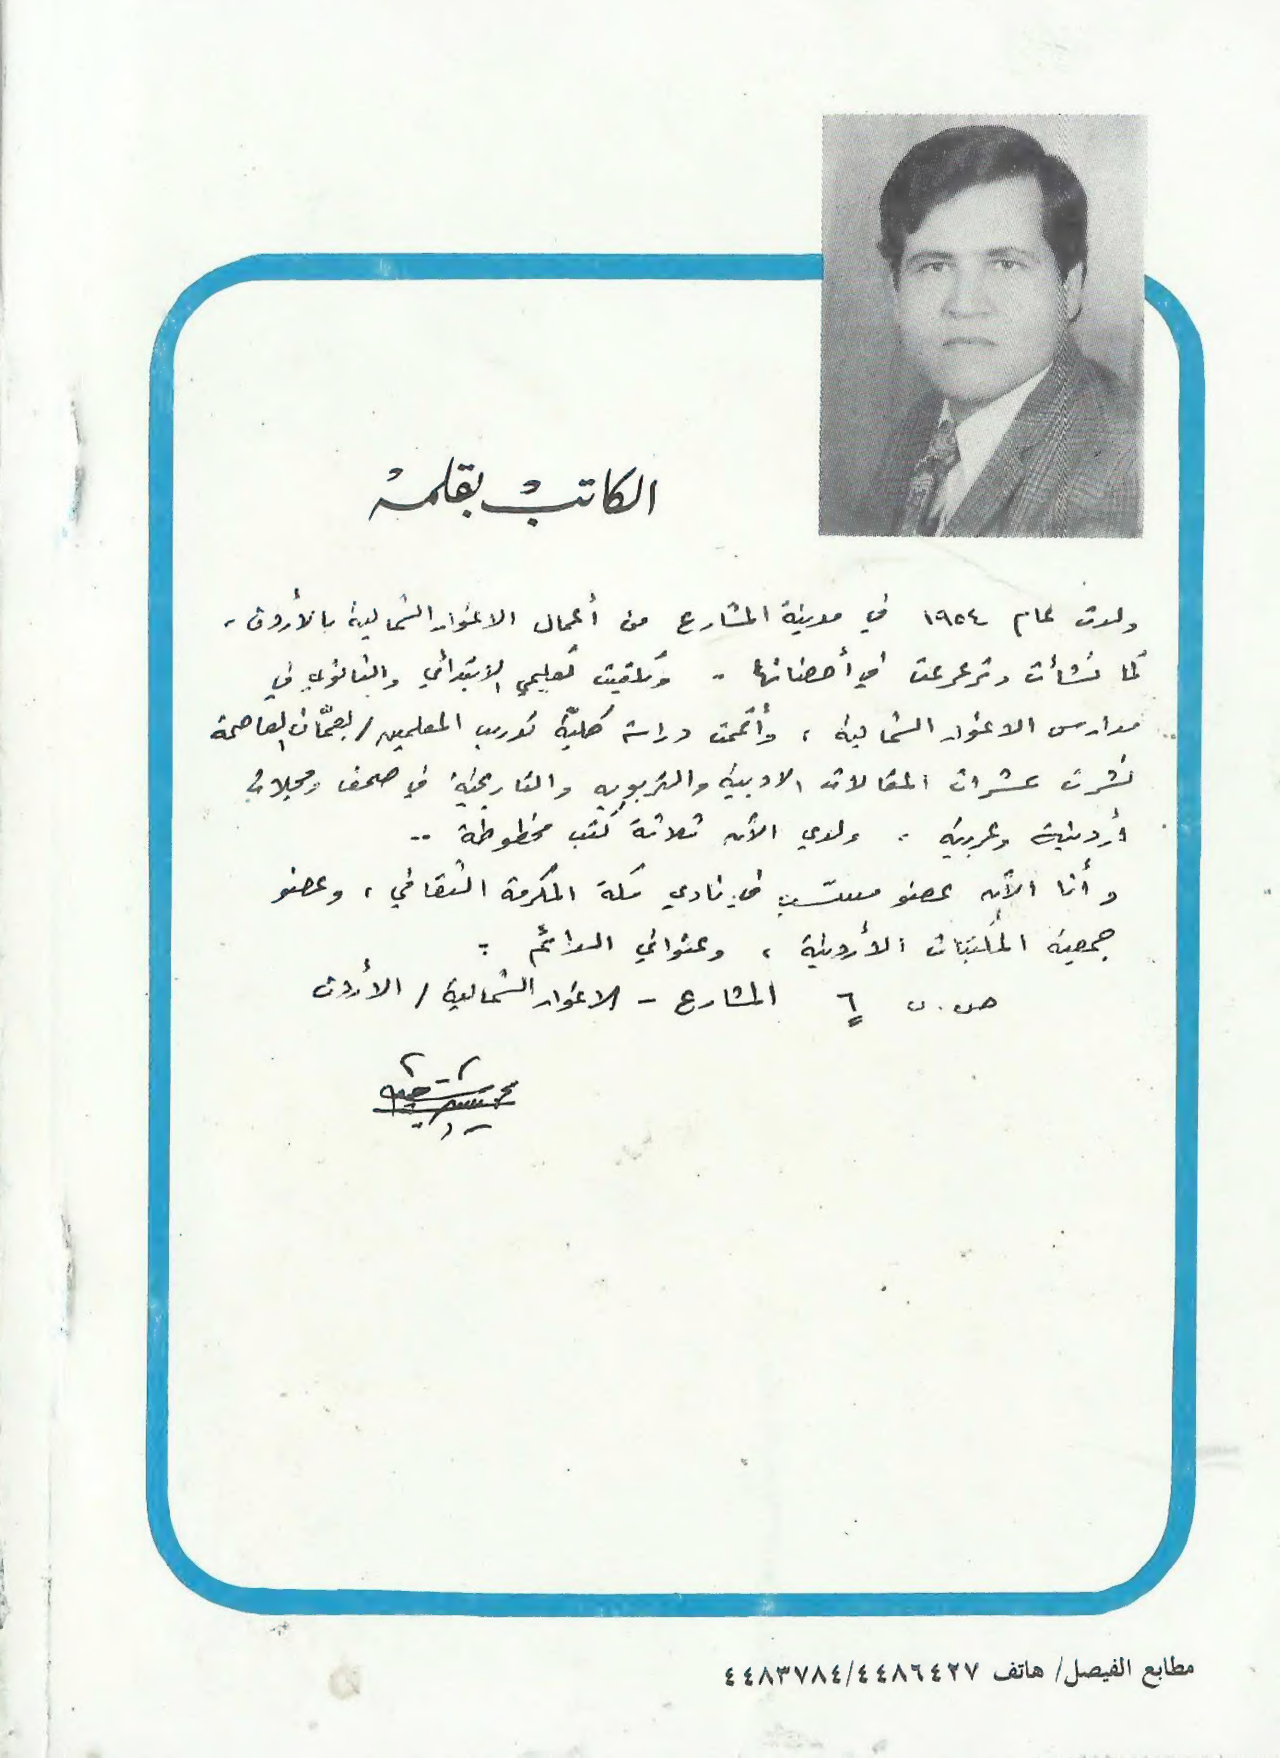 الكاتب بقلمه
ولدت عام ١٩٥٤ في مدينة المشارع من أعمال الاغوار الشمالية بالأردن ،
كما نشأت وترعرعت في أحضانها .. وتلقيت تعليمي الابتدائي والثانوي في
مدارس الاغوار الشمالية ، وأتممت دراسة كليّة تدريب المعلمين / بعمّان العاصمة
نشرت عشرات المقالات الادبية والتربويه والتاريخية في صحف ومجلات
أردنية وعربية . ولدي الآن ثلاثة كتب مخطوطة ..
وأنا الآن عضو منتسب في نادي مكة المكرمة الثقافي ، وعضو
جمعية المكتبات الأردنية ، وعنواني الدائم :
ص . ب ٦ المشارع - الاغوار الشمالية / الأردن
مطابع الفيصل/ هاتف ٤٤٨٦٤٢٧/٤٤٨٣٧٨٤